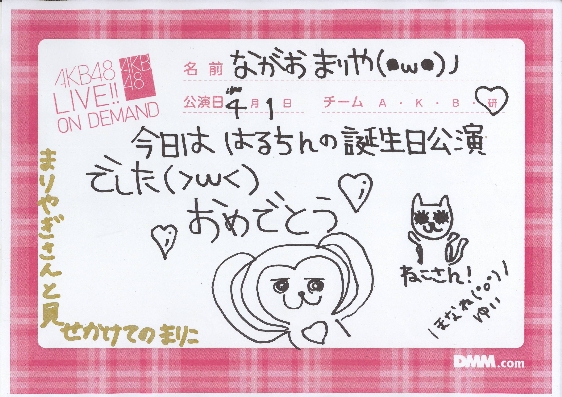 AKB48
LIVE!!
ON DEMAND
AKB
48
名前 ながお まりや(●ω●)ノ
公演日 4月1日 チーム A・K・B・研
今日は はるちんの誕生日公演
でした(>ω<)
おめでとう
ねこさん!
ゆい
まりやぎさんと見
せかけてのまりこ
DMM.com